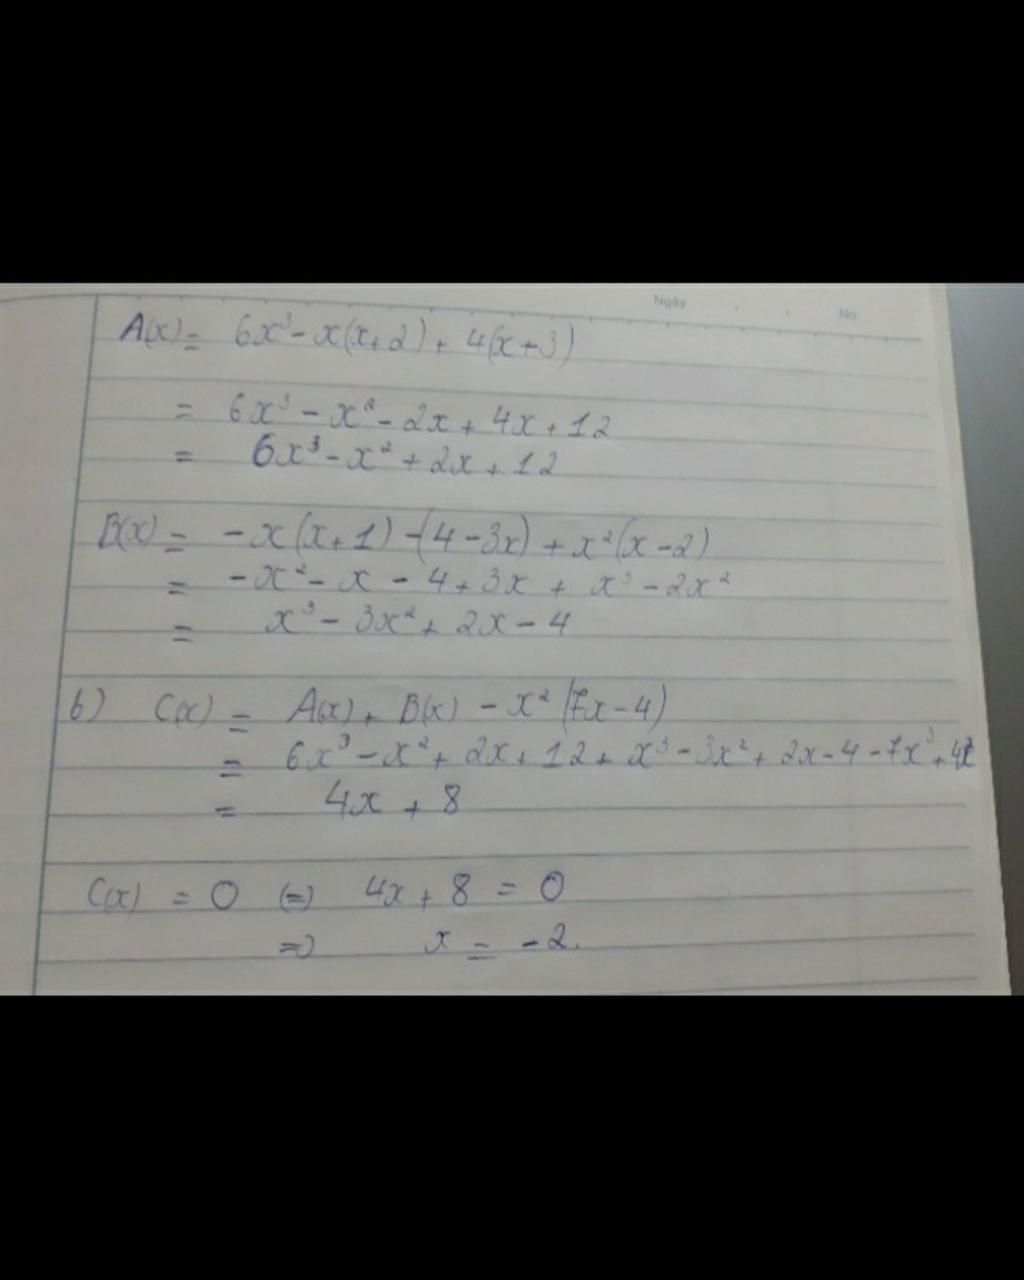 Ngày
No
A(x) = 6x³ - x(x+2) + 4(x+3)
= 6x³ - x² - 2x + 4x + 12
= 6x³ - x² + 2x + 12
B(x) = -x(x+1) - (4-3x) + x²(x-2)
= -x² - x - 4 + 3x + x³ - 2x²
= x³ - 3x² + 2x - 4
b) C(x) = A(x) + B(x) - x²(7x-4)
= 6x³ - x² + 2x + 12 + x³ - 3x² + 2x - 4 - 7x³ + 4x²
= 4x + 8
C(x) = 0 (=) 4x + 8 = 0
=) x = -2.